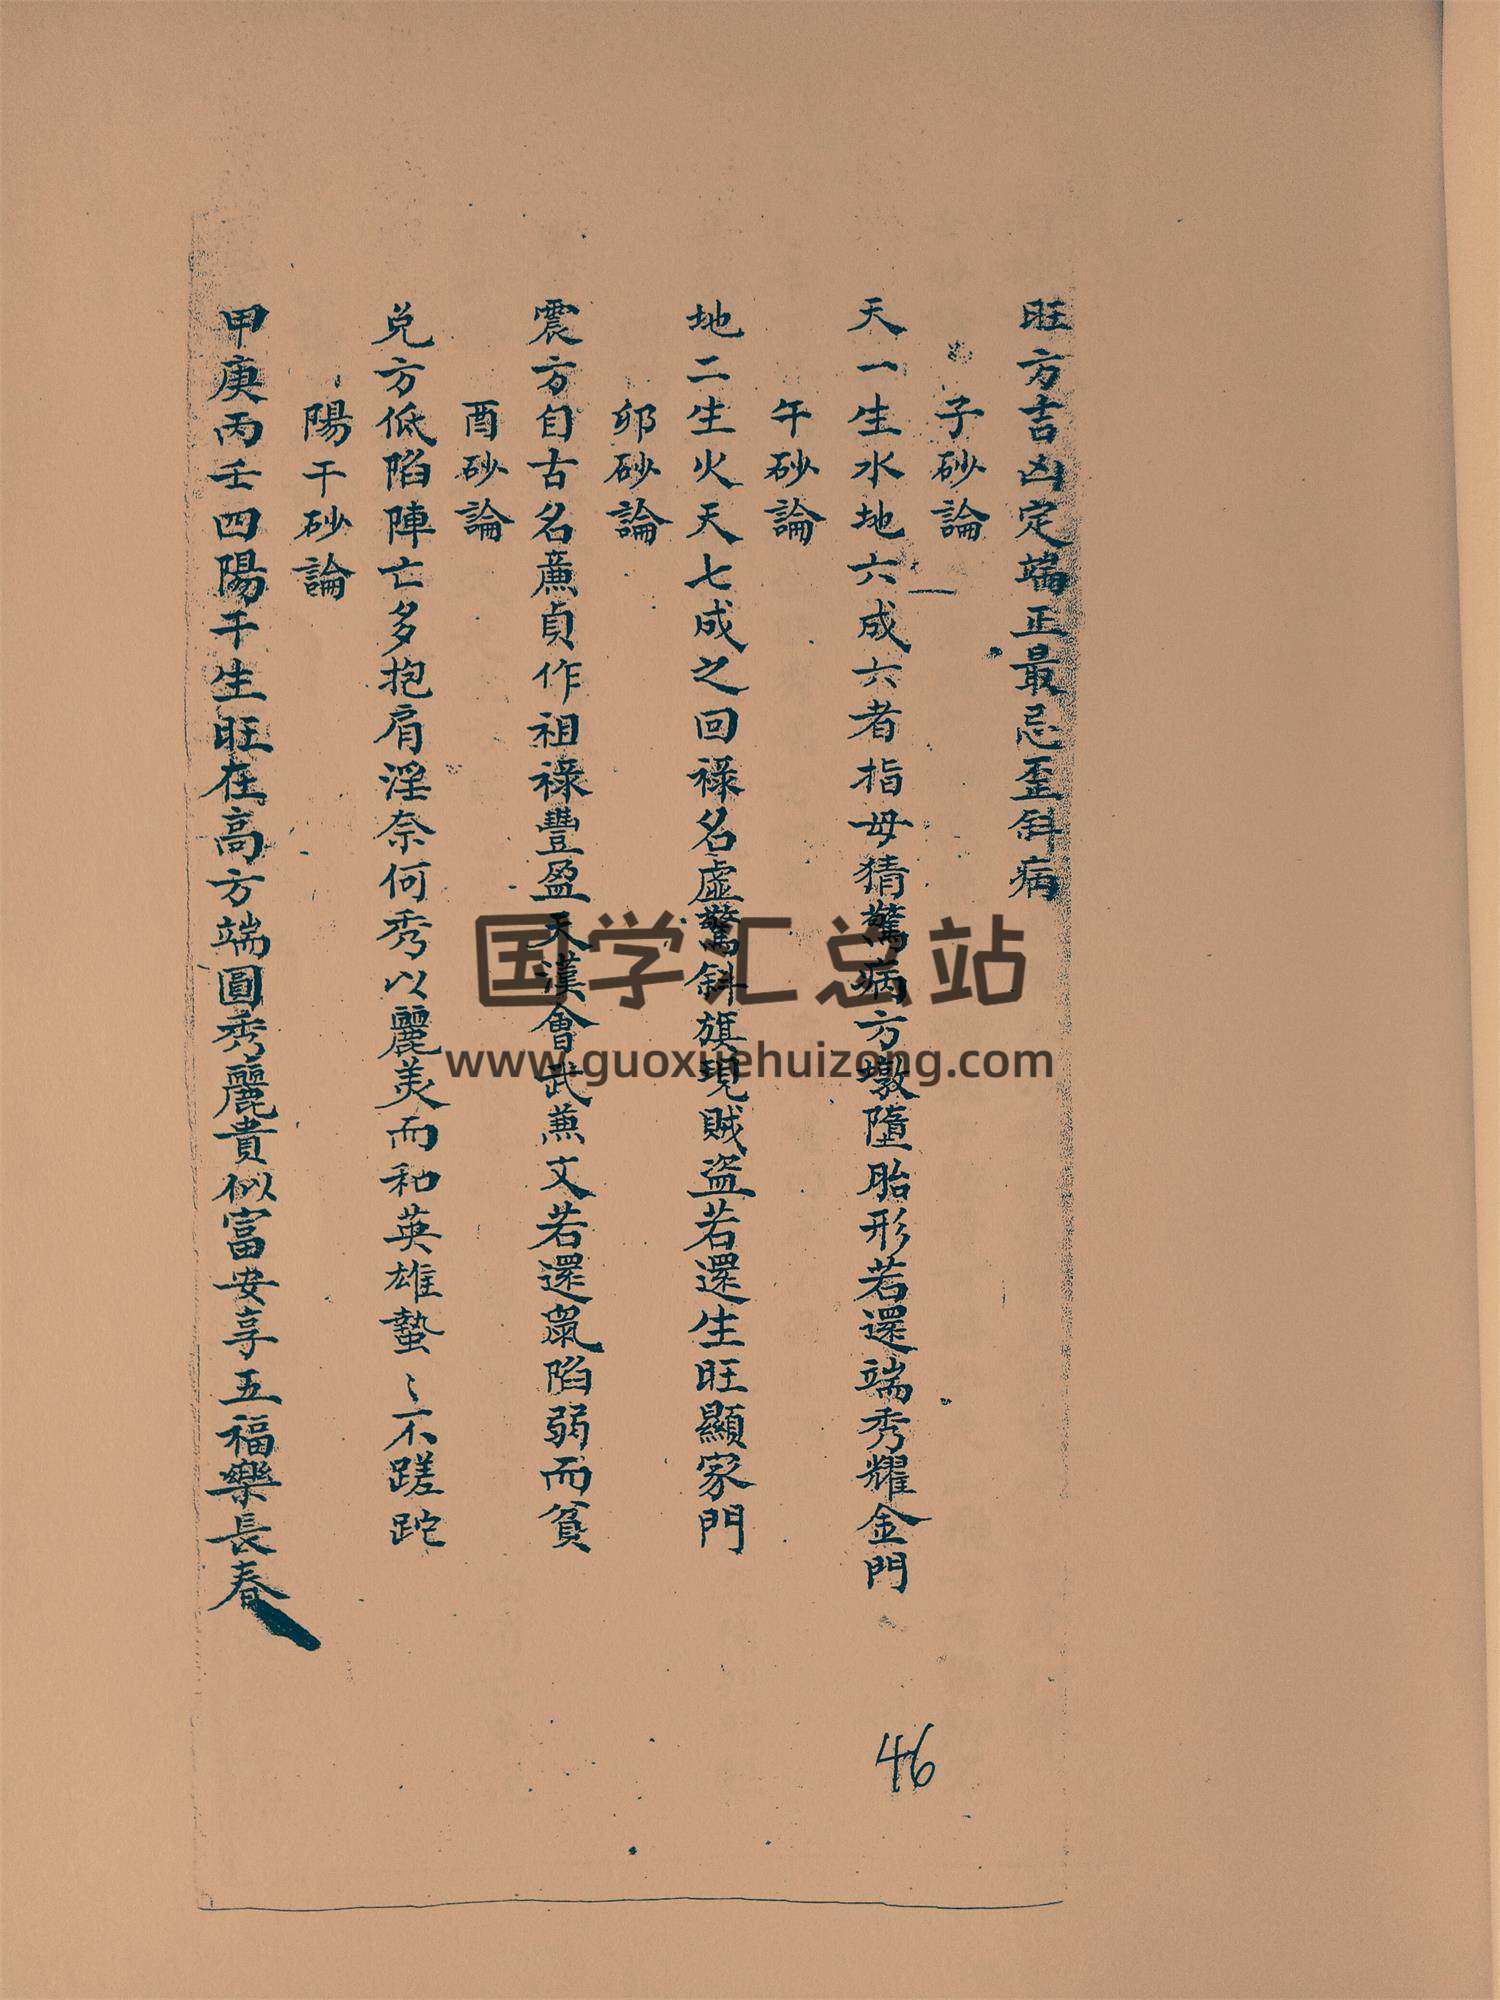 旺方吉凶定端正最忌歪斜病
子砂論
天一生水地六成六者指母猜驚病方墩墮胎形若還端秀耀金門
午砂論
地二生火天七成之回祿名虛驚斜旗現賊盜若還生旺顯家門
卯砂論
震方自古名蔗貞作祖祿豐盈天漢會武蕪文若還風陷弱而貧
酉砂論
兌方低陷陣亡多抱肩淫奈何秀以麗美而和英雄蟄〻不蹉跎
陽干砂論
甲庚丙壬四陽干生旺在高方端圓秀麗貴似富安享五福樂長春
46
国学汇总站
www.guoxuehuizong.com